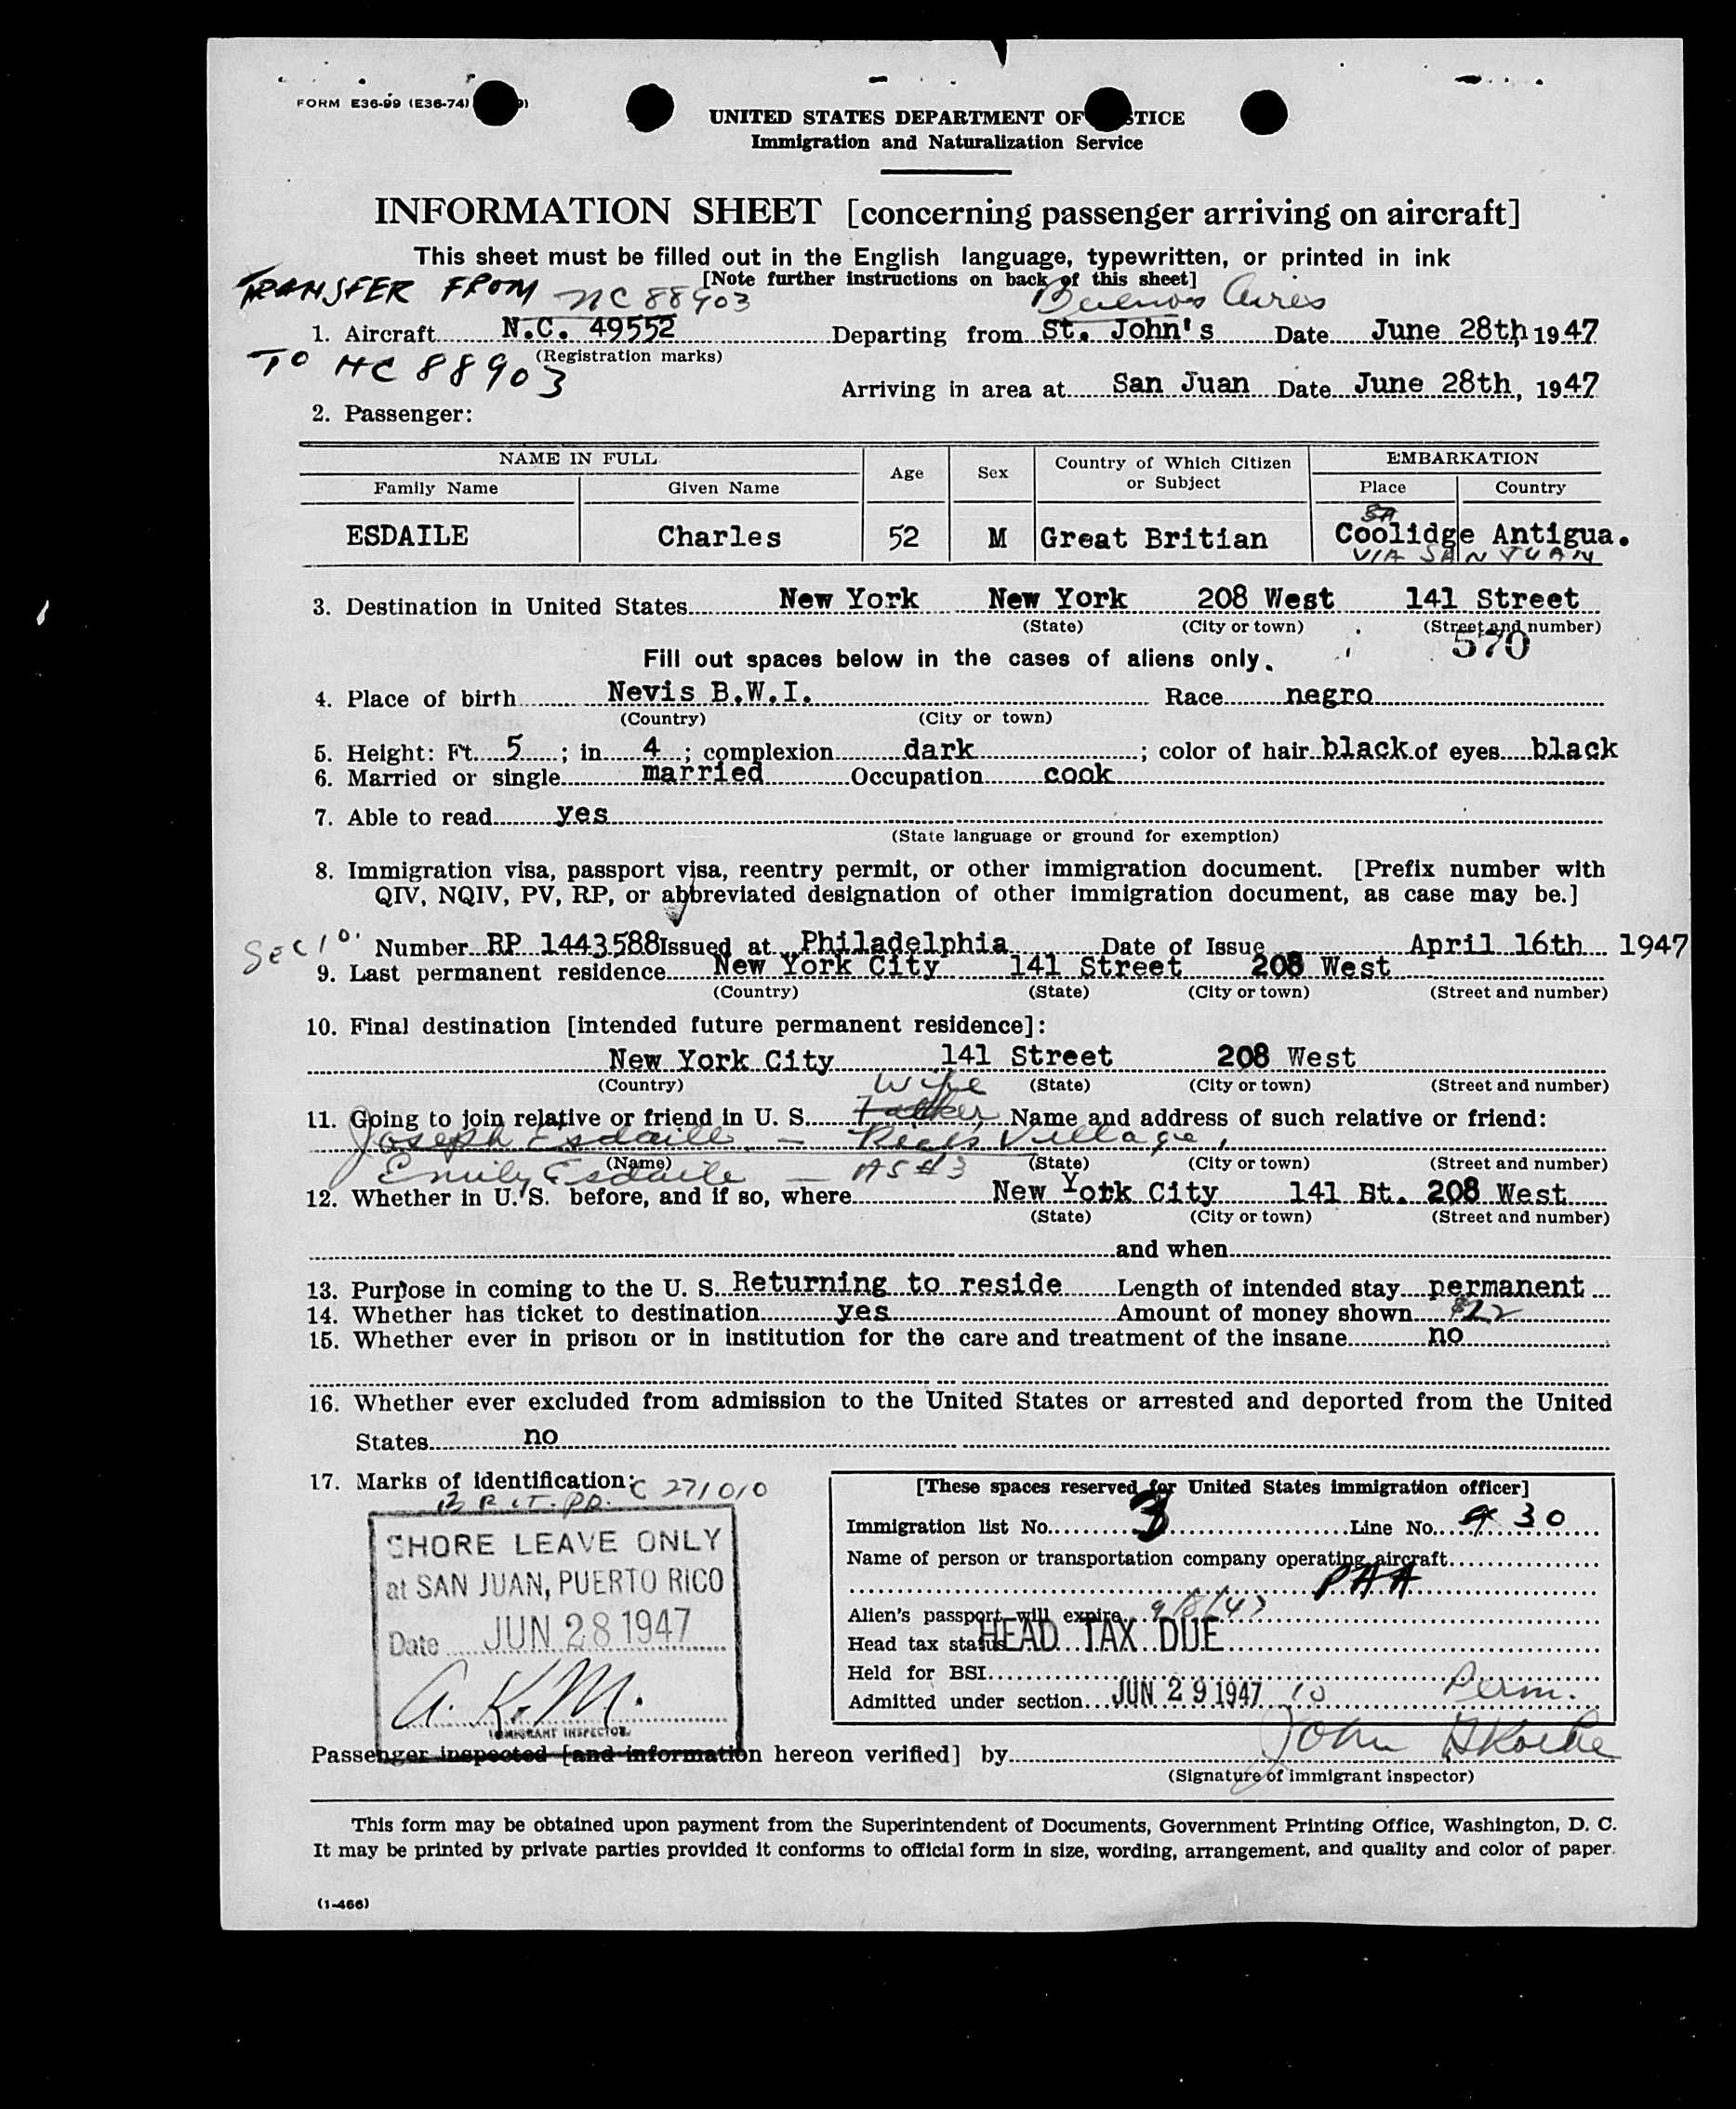 FORM E36-99 (E36-74)
UNITED STATES DEPARTMENT OF JUSTICE
Immigration and Naturalization Service
INFORMATION SHEET [concerning passenger arriving on aircraft]
This sheet must be filled out in the English language, typewritten, or printed in ink
[Note further instructions on back of this sheet]
TRANSFER FROM NC 88903 Buenos Aires
1. Aircraft N.C. 49552 Departing from St. John's Date June 28th 1947
(Registration marks)
TO NC 88903
Arriving in area at San Juan Date June 28th, 1947
2. Passenger:
NAME IN FULL Age Sex Country of Which Citizen or Subject EMBARKATION
Family Name Given Name Place Country
SA
ESDAILE Charles 52 M Great Britian Coolidge Antigua.
VIA SAN JUAN
3. Destination in United States New York New York 208 West 141 Street
(State) (City or town) (Street and number)
570
Fill out spaces below in the cases of aliens only.
4. Place of birth Nevis B.W.I. Race negro
(Country) (City or town)
5. Height: Ft. 5; in 4; complexion dark; color of hair black of eyes black
6. Married or single married Occupation cook
7. Able to read yes
(State language or ground for exemption)
8. Immigration visa, passport visa, reentry permit, or other immigration document. [Prefix number with
QIV, NQIV, PV, RP, or abbreviated designation of other immigration document, as case may be.]
SEC 10. Number RP 1443588 Issued at Philadelphia Date of Issue April 16th 1947
9. Last permanent residence New York City 141 Street 208 West
(Country) (State) (City or town) (Street and number)
10. Final destination [intended future permanent residence]:
New York City 141 Street 208 West
(Country) (State) (City or town) (Street and number)
Wife
11. Going to join relative or friend in U. S. Father, Name and address of such relative or friend:
Joseph Esdaille - Village,
(Name) (State) (City or town) (Street and number)
Emily Esdaile - AS #3
12. Whether in U. S. before, and if so, where New York City 141 St. 208 West
(State) (City or town) (Street and number)
and when
13. Purpose in coming to the U. S. Returning to reside Length of intended stay permanent
14. Whether has ticket to destination yes Amount of money shown $22
15. Whether ever in prison or in institution for the care and treatment of the insane no
16. Whether ever excluded from admission to the United States or arrested and deported from the United
States no
17. Marks of identification: C 271010
SHORE LEAVE ONLY
at SAN JUAN, PUERTO RICO
Date JUN 28 1947
A. K. M.
IMMIGRANT INSPECTOR.
[These spaces reserved for United States immigration officer]
Immigration list No. 3 Line No. 30
Name of person or transportation company operating aircraft
PAA
Alien's passport will expire 9/8/47
Head tax status HEAD TAX DUE
Held for BSI
Admitted under section JUN 29 1947 10 Perm.
Passenger inspected [and information hereon verified] by John
(Signature of immigrant inspector)
This form may be obtained upon payment from the Superintendent of Documents, Government Printing Office, Washington, D. C.
It may be printed by private parties provided it conforms to official form in size, wording, arrangement, and quality and color of paper.
(1-466)